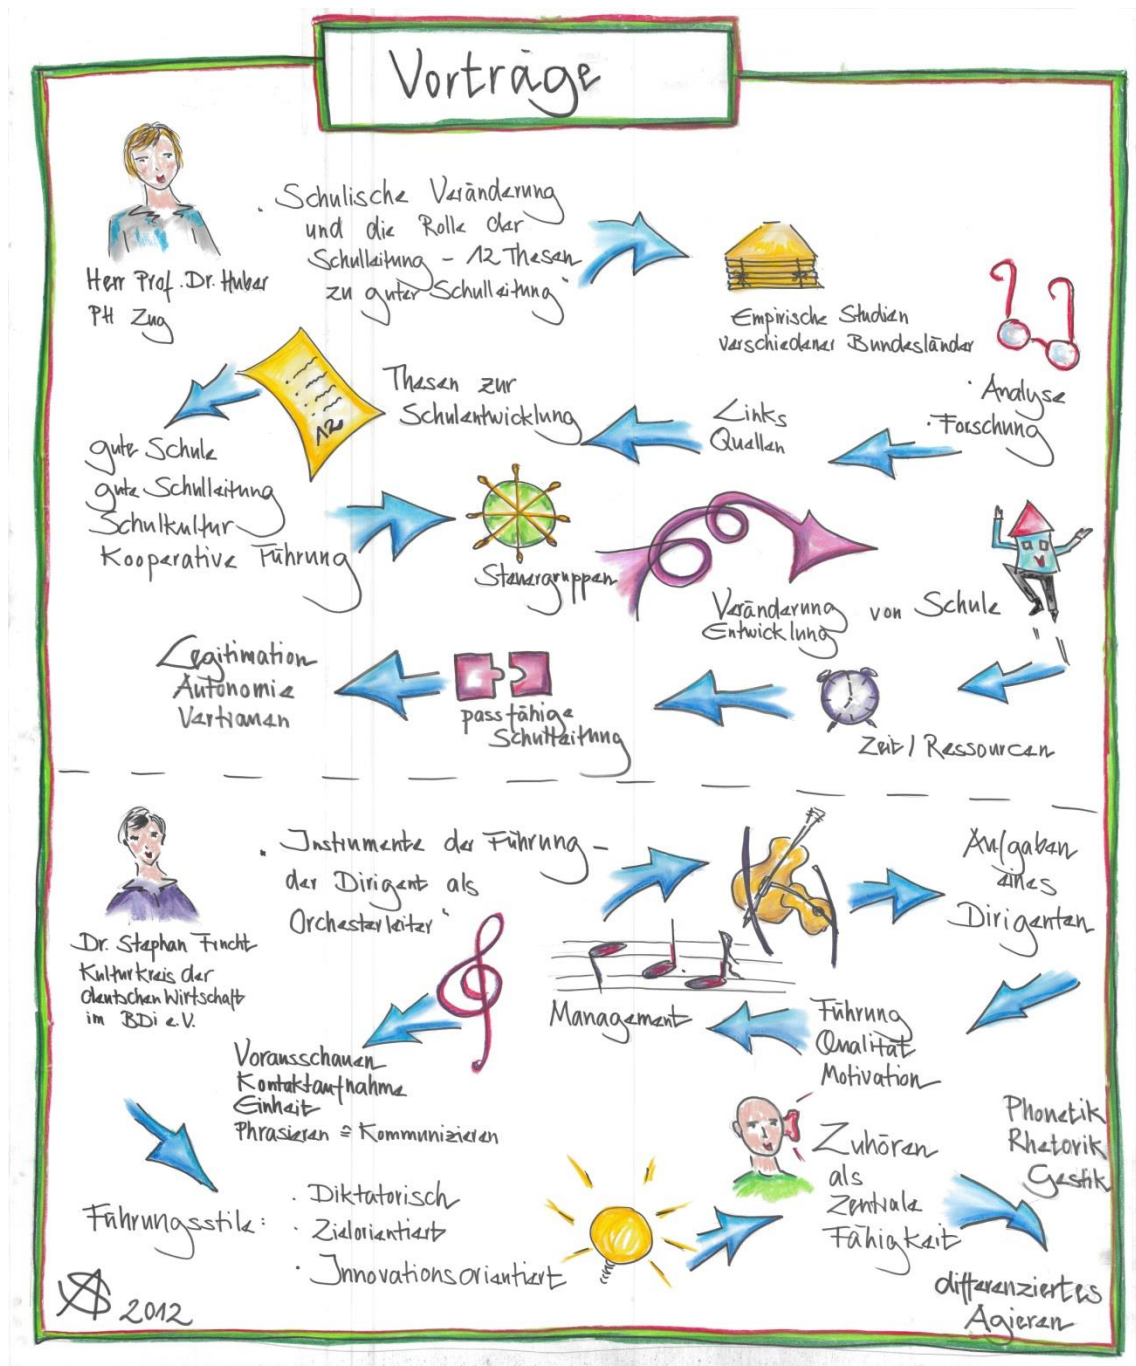 Vorträge
"Schulische Veränderung
und die Rolle der
Schulleitung - 12 Thesen
zu guter Schulleitung"
Herr Prof. Dr. Huber
PH Zug
Empirische Studien
verschiedener Bundesländer
· Analyse
· Forschung
Links
Quellen
Thesen zur
Schulentwicklung
12
gute Schule
gute Schulleitung
Schulkultur
Kooperative Führung
Steuergruppen
Veränderung
Entwicklung
von Schule
Zeit / Ressourcen
passfähige
Schulleitung
Legitimation
Autonomie
Vertrauen
"Instrumente der Führung -
der Dirigent als
Orchesterleiter"
Dr. Stephan Frucht
Kulturkreis der
deutschen Wirtschaft
im BDi e.V.
Aufgaben
eines
Dirigenten
Führung
Qualität
Motivation
Management
Vorausschauen
Kontaktaufnahme
Einheit
Phrasieren ≙ Kommunizieren
Führungsstile:
· Diktatorisch
· Zielorientiert
· Innovationsorientiert
Zuhören
als
Zentrale
Fähigkeit
Phonetik
Rhetorik
Gestik
differenziertes
Agieren
2012